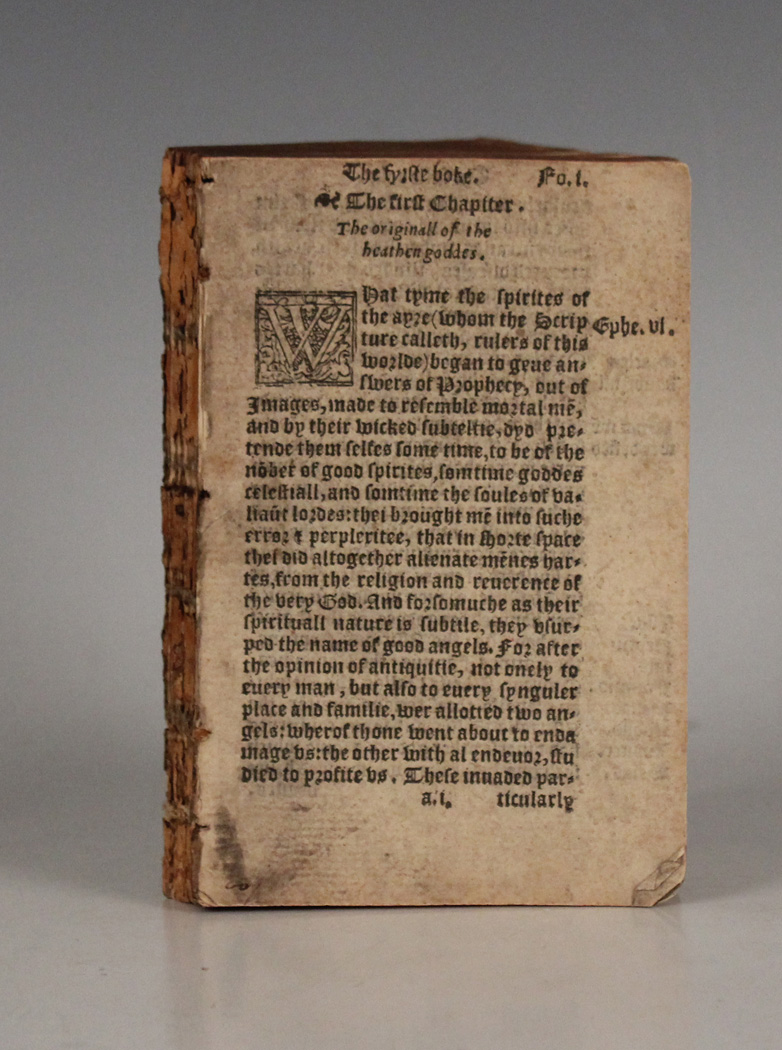 The fyrſte boke. Fo. i.
The firſt Chapiter.
The originall of the
heathen goddes.
WHat tyme the ſpirites of
the ayre (whom the Scrip Ephe. vi.
ture calleth, rulers of this
worlde) began to geue an-
ſwers of Prophecy, out of
Images, made to reſemble mortal mē,
and by their wicked ſubteltie, dyd pre-
tende them ſelfes ſome time, to be of the
nōber of good ſpirites, ſomtime goddes
celeſtiall, and ſomtime the ſoules of va-
liaūt lordes: thei brought mē into ſuche
error & perplexitee, that in ſhorte ſpace
thei did altogether alienate mēnes har-
tes, from the religion and reuerence of
the very God. And forſomuche as their
ſpirituall nature is ſubtile, they vſur-
ped the name of good angels. For after
the opinion of antiquitie, not onely to
euery man, but alſo to euery ſynguler
place and familie, wer allotted two an-
gels: wherof thone went about to enda
mage vs: the other with al endeuor, ſtu
died to profite vs. Theſe inuaded par-
a.i. ticularly